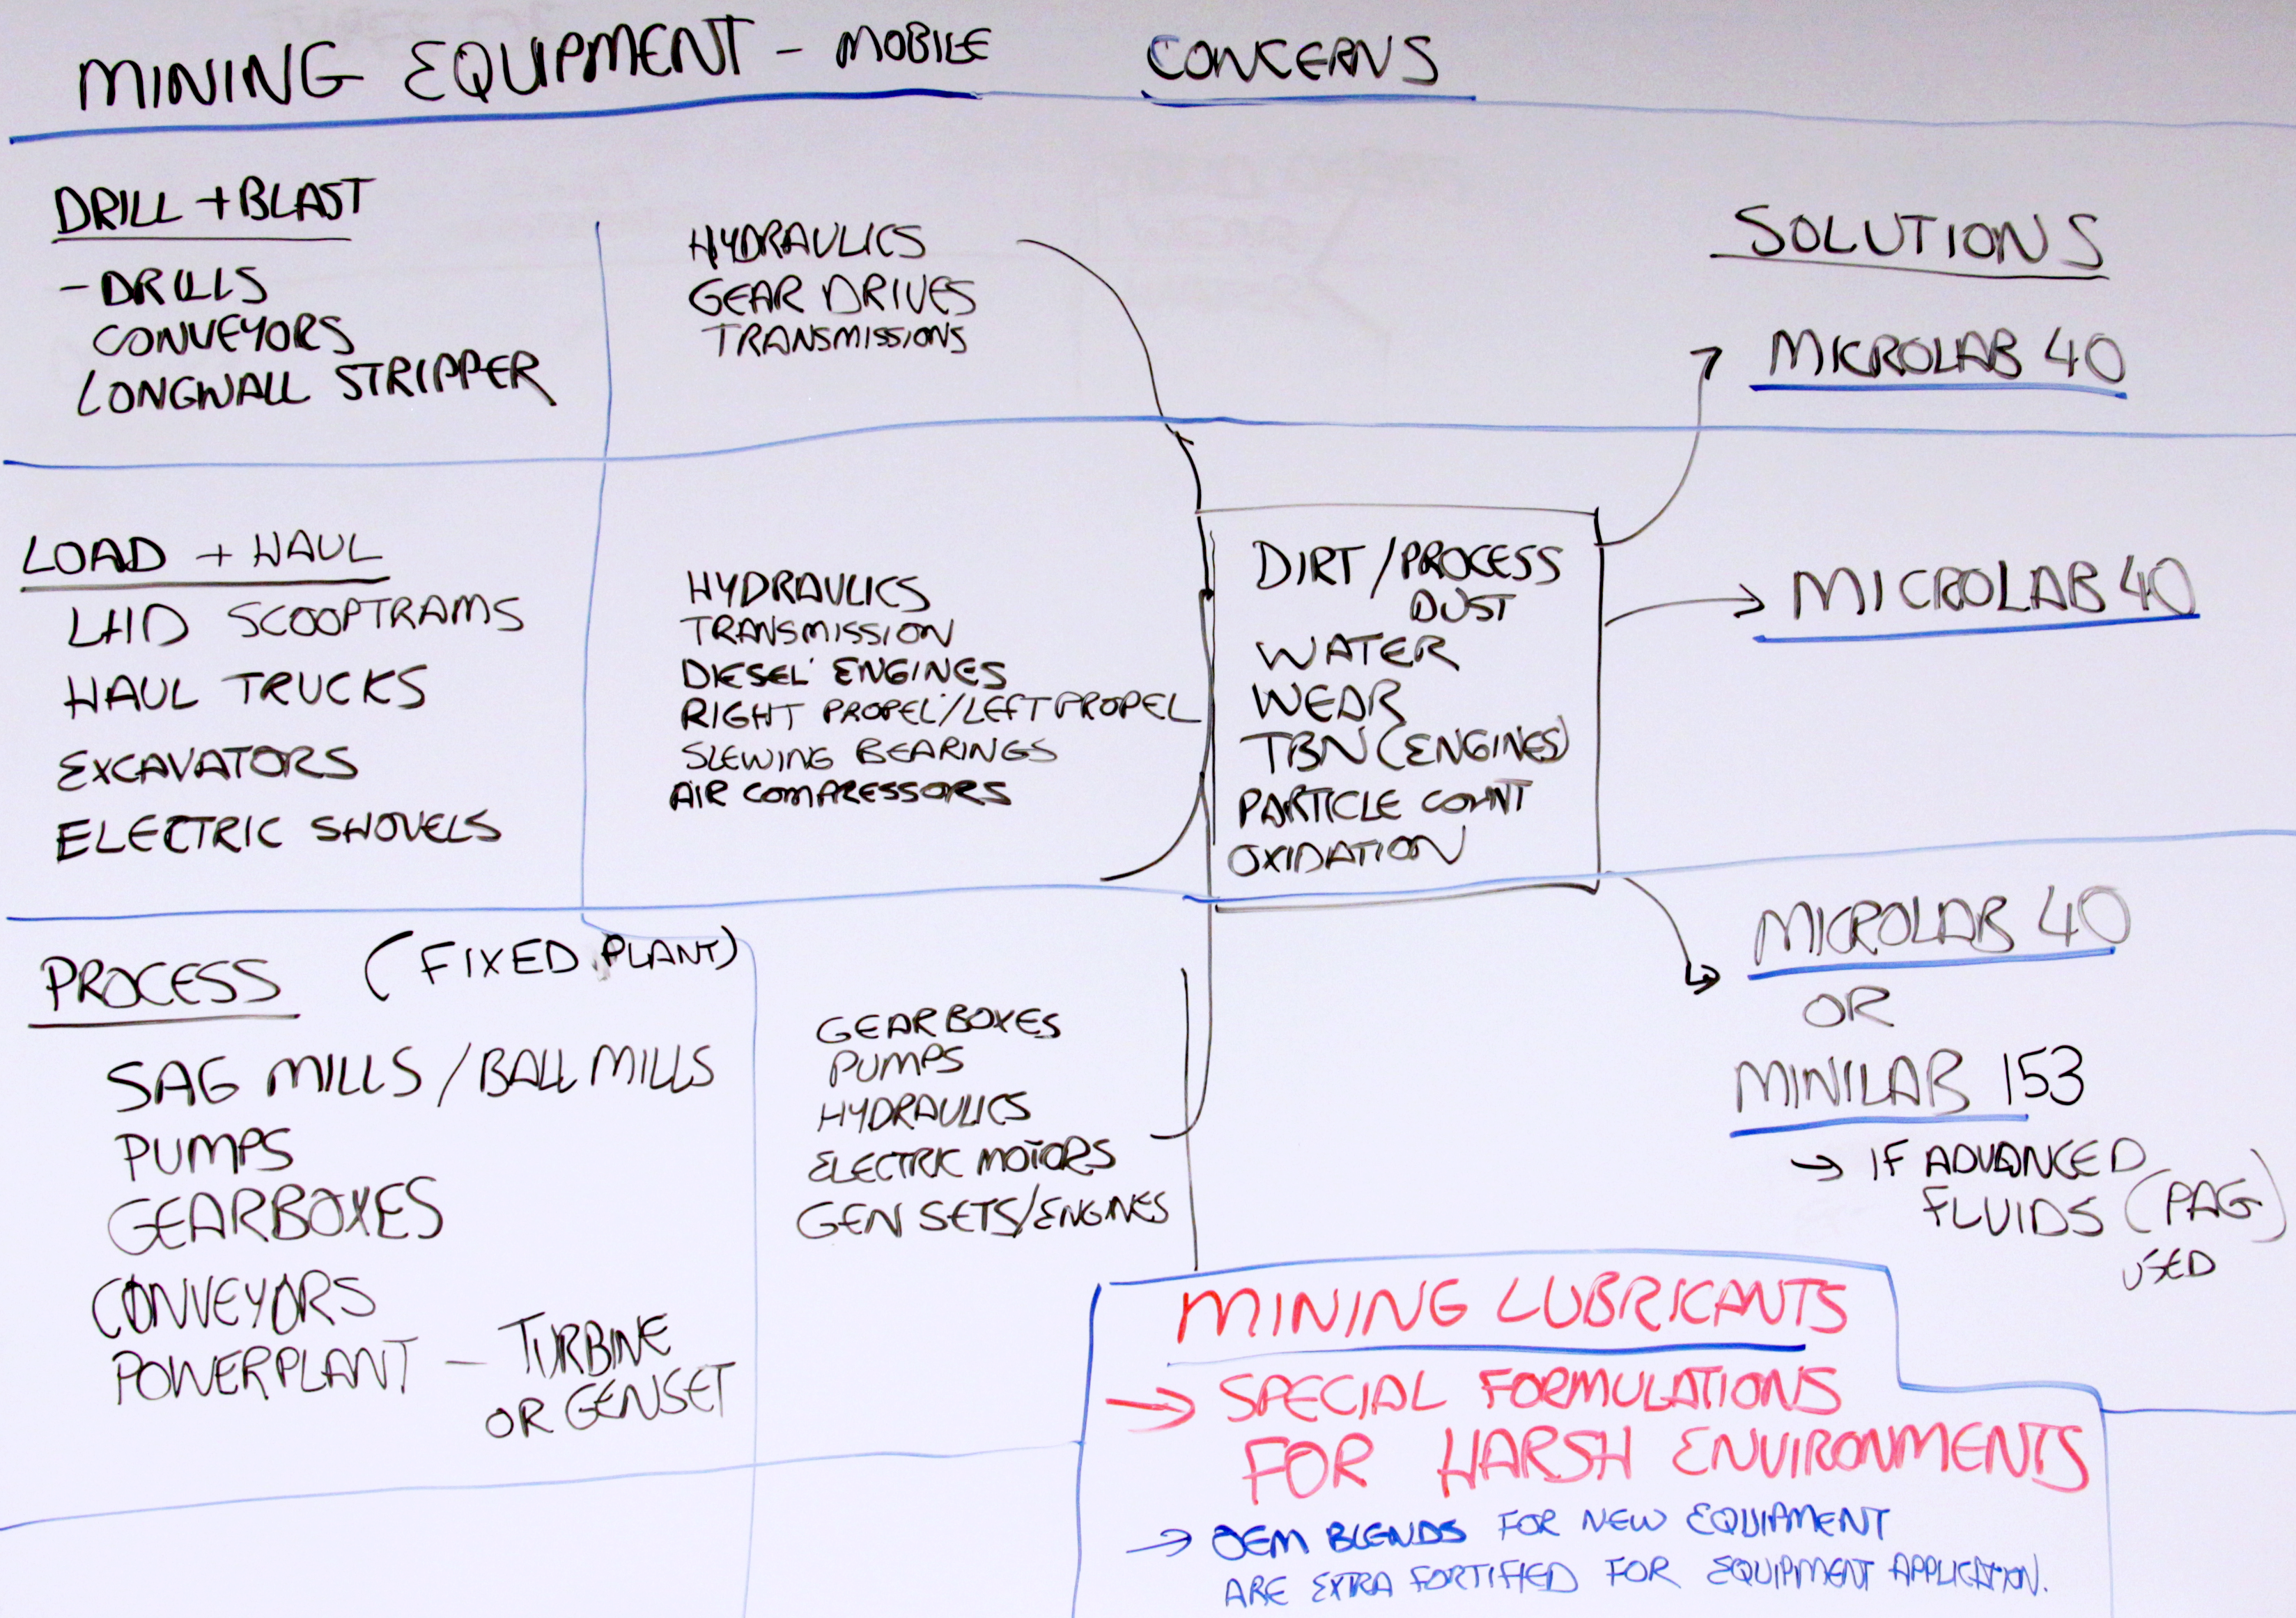 MINING EQUIPMENT - MOBILE
CONCERNS
DRILL + BLAST
- DRILLS
CONVEYORS
LONGWALL STRIPPER
HYDRAULICS
GEAR DRIVES
TRANSMISSIONS
SOLUTIONS
MICROLAB 40
LOAD + HAUL
LHD SCOOPTRAMS
HAUL TRUCKS
EXCAVATORS
ELECTRIC SHOVELS
HYDRAULICS
TRANSMISSION
DIESEL ENGINES
RIGHT PROPEL/LEFT PROPEL
SLEWING BEARINGS
AIR COMPRESSORS
DIRT/PROCESS
DUST
WATER
WEAR
TBN (ENGINES)
PARTICLE COUNT
OXIDATION
MICROLAB 40
PROCESS (FIXED PLANT)
SAG MILLS / BALL MILLS
PUMPS
GEARBOXES
CONVEYORS
POWERPLANT - TURBINE
OR GENSET
GEARBOXES
PUMPS
HYDRAULICS
ELECTRIC MOTORS
GEN SETS/ENGINES
MICROLAB 40
OR
MINILAB 153
→ IF ADVANCED
FLUIDS (PAG)
USED
MINING LUBRICANTS
→ SPECIAL FORMULATIONS
FOR HARSH ENVIRONMENTS
→ OEM BLENDS FOR NEW EQUIPMENT
ARE EXTRA FORTIFIED FOR EQUIPMENT APPLICATION.